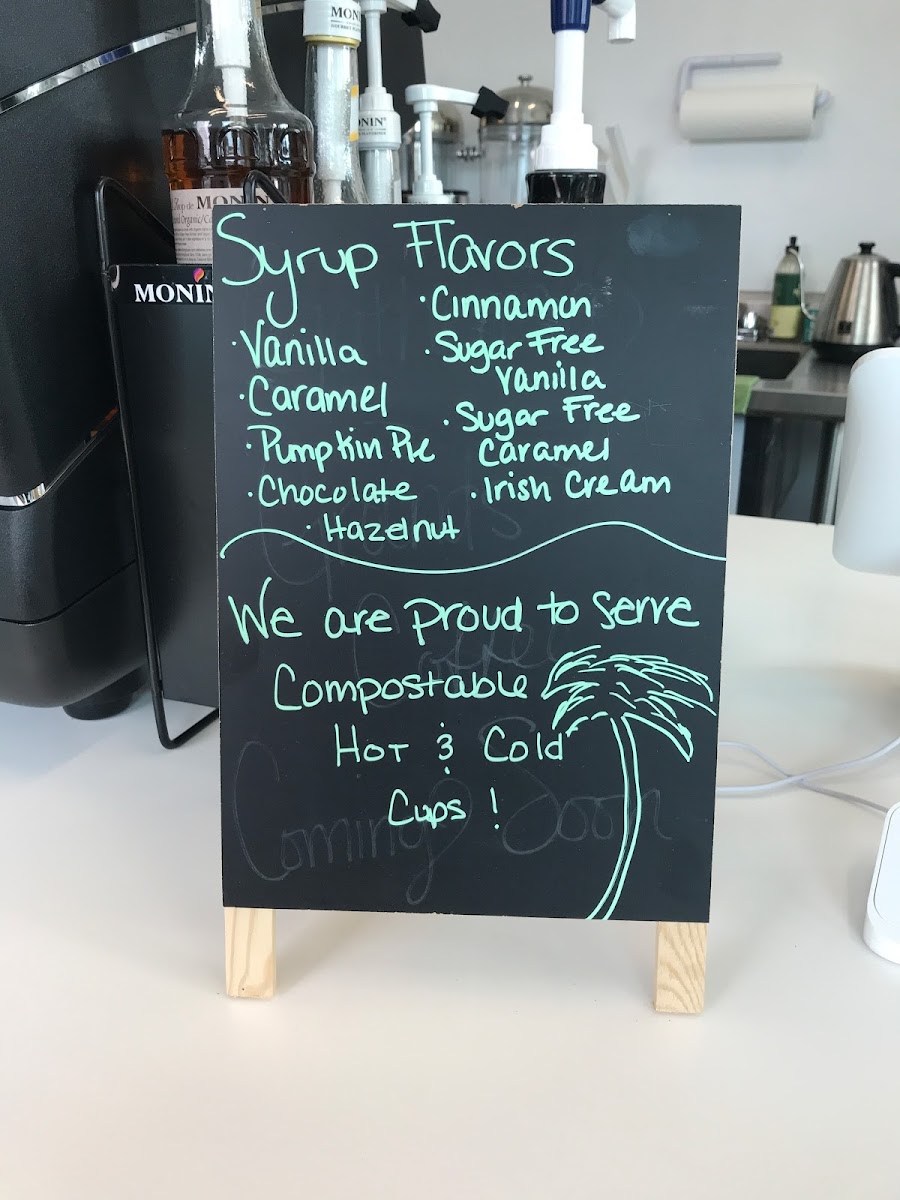 MONIN
MONIN
ONIN
MONIN
Syrup Flavors
· Vanilla
· Caramel
· Pumpkin Pie
· Chocolate
· Hazelnut
· Cinnamon
· Sugar Free
Vanilla
· Sugar Free
Caramel
· Irish Cream
We are proud to serve
Compostable
Hot & Cold
Cups !
Coming Soon